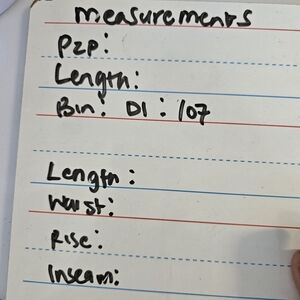 measurements
P2P:
Length:
Bin: D1: 107
Length:
Waist:
Rise:
Inseam: